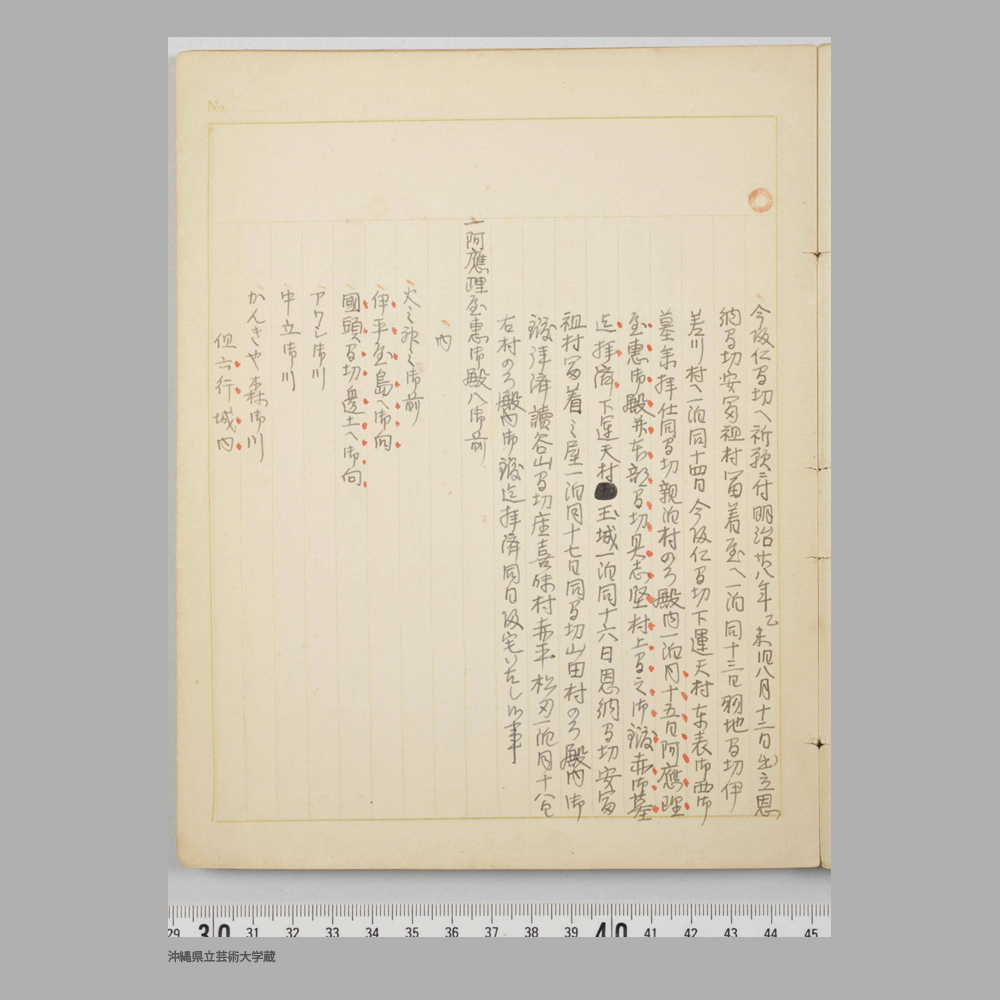 No.
今皈仁間切へ祈願ニ付明治廿八年乙未旧八月十二日出立恩
納間切安冨祖村冨着屋へ一泊同十三日羽地間切伊
差川村へ一泊同十四日今皈仁間切下運天村東表御西御
墓参拝仕同間切親泊村のろ殿内一泊同十五日阿應理
屋惠御殿并本部間切具志堅村上間之御嶽赤御墓
迄拝済下運天村玉城一泊同十六日恩納間切安冨
祖村冨着之屋一泊同十七日同間切山田村のろ殿内御
嶽拝済讀谷山間切座喜味村赤平松刃一泊同十八日
右村のろ殿内御嶽迄拝済同日皈宅いたし候事
一阿應理屋惠御殿八御前
内
火之神之御前
伊平屋島へ御向
國頭間切邊土へ御向
アワレ御川
中立御川
かんきや森御川
但六行城内
29 30 31 32 33 34 35 36 37 38 39 40 41 42 43 44 45
沖縄県立芸術大学蔵